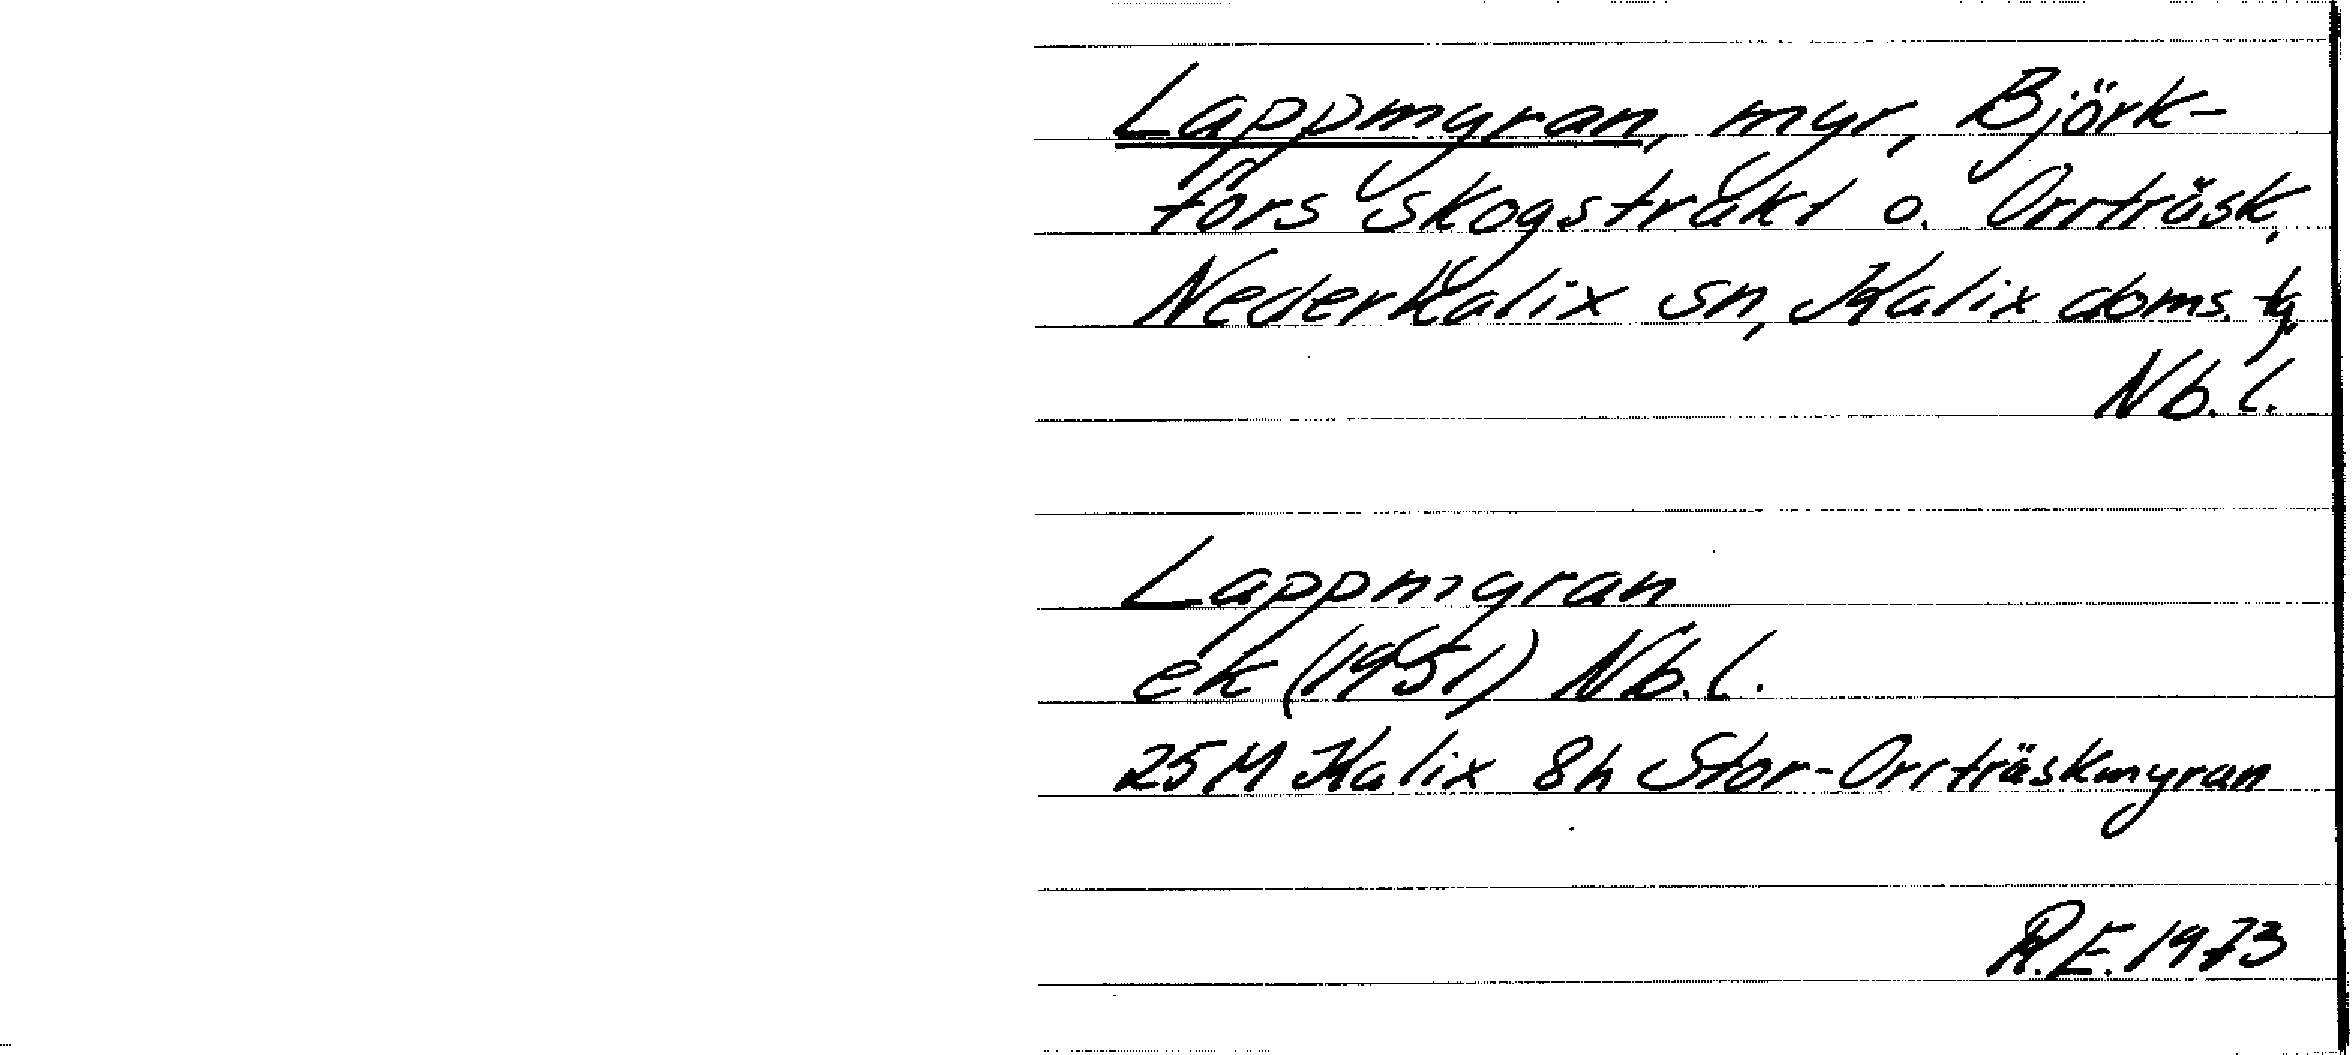 Lappmyran, myr, Björk-
fors skogstrakt o. Orrträsk,
Nederkalix sn, Kalix doms. tg,
Nb. l.
Lappmyran
ek (1951) Nb. l.
25M Kalix 8h Stor-Orrträskmyran
R.E. 1973